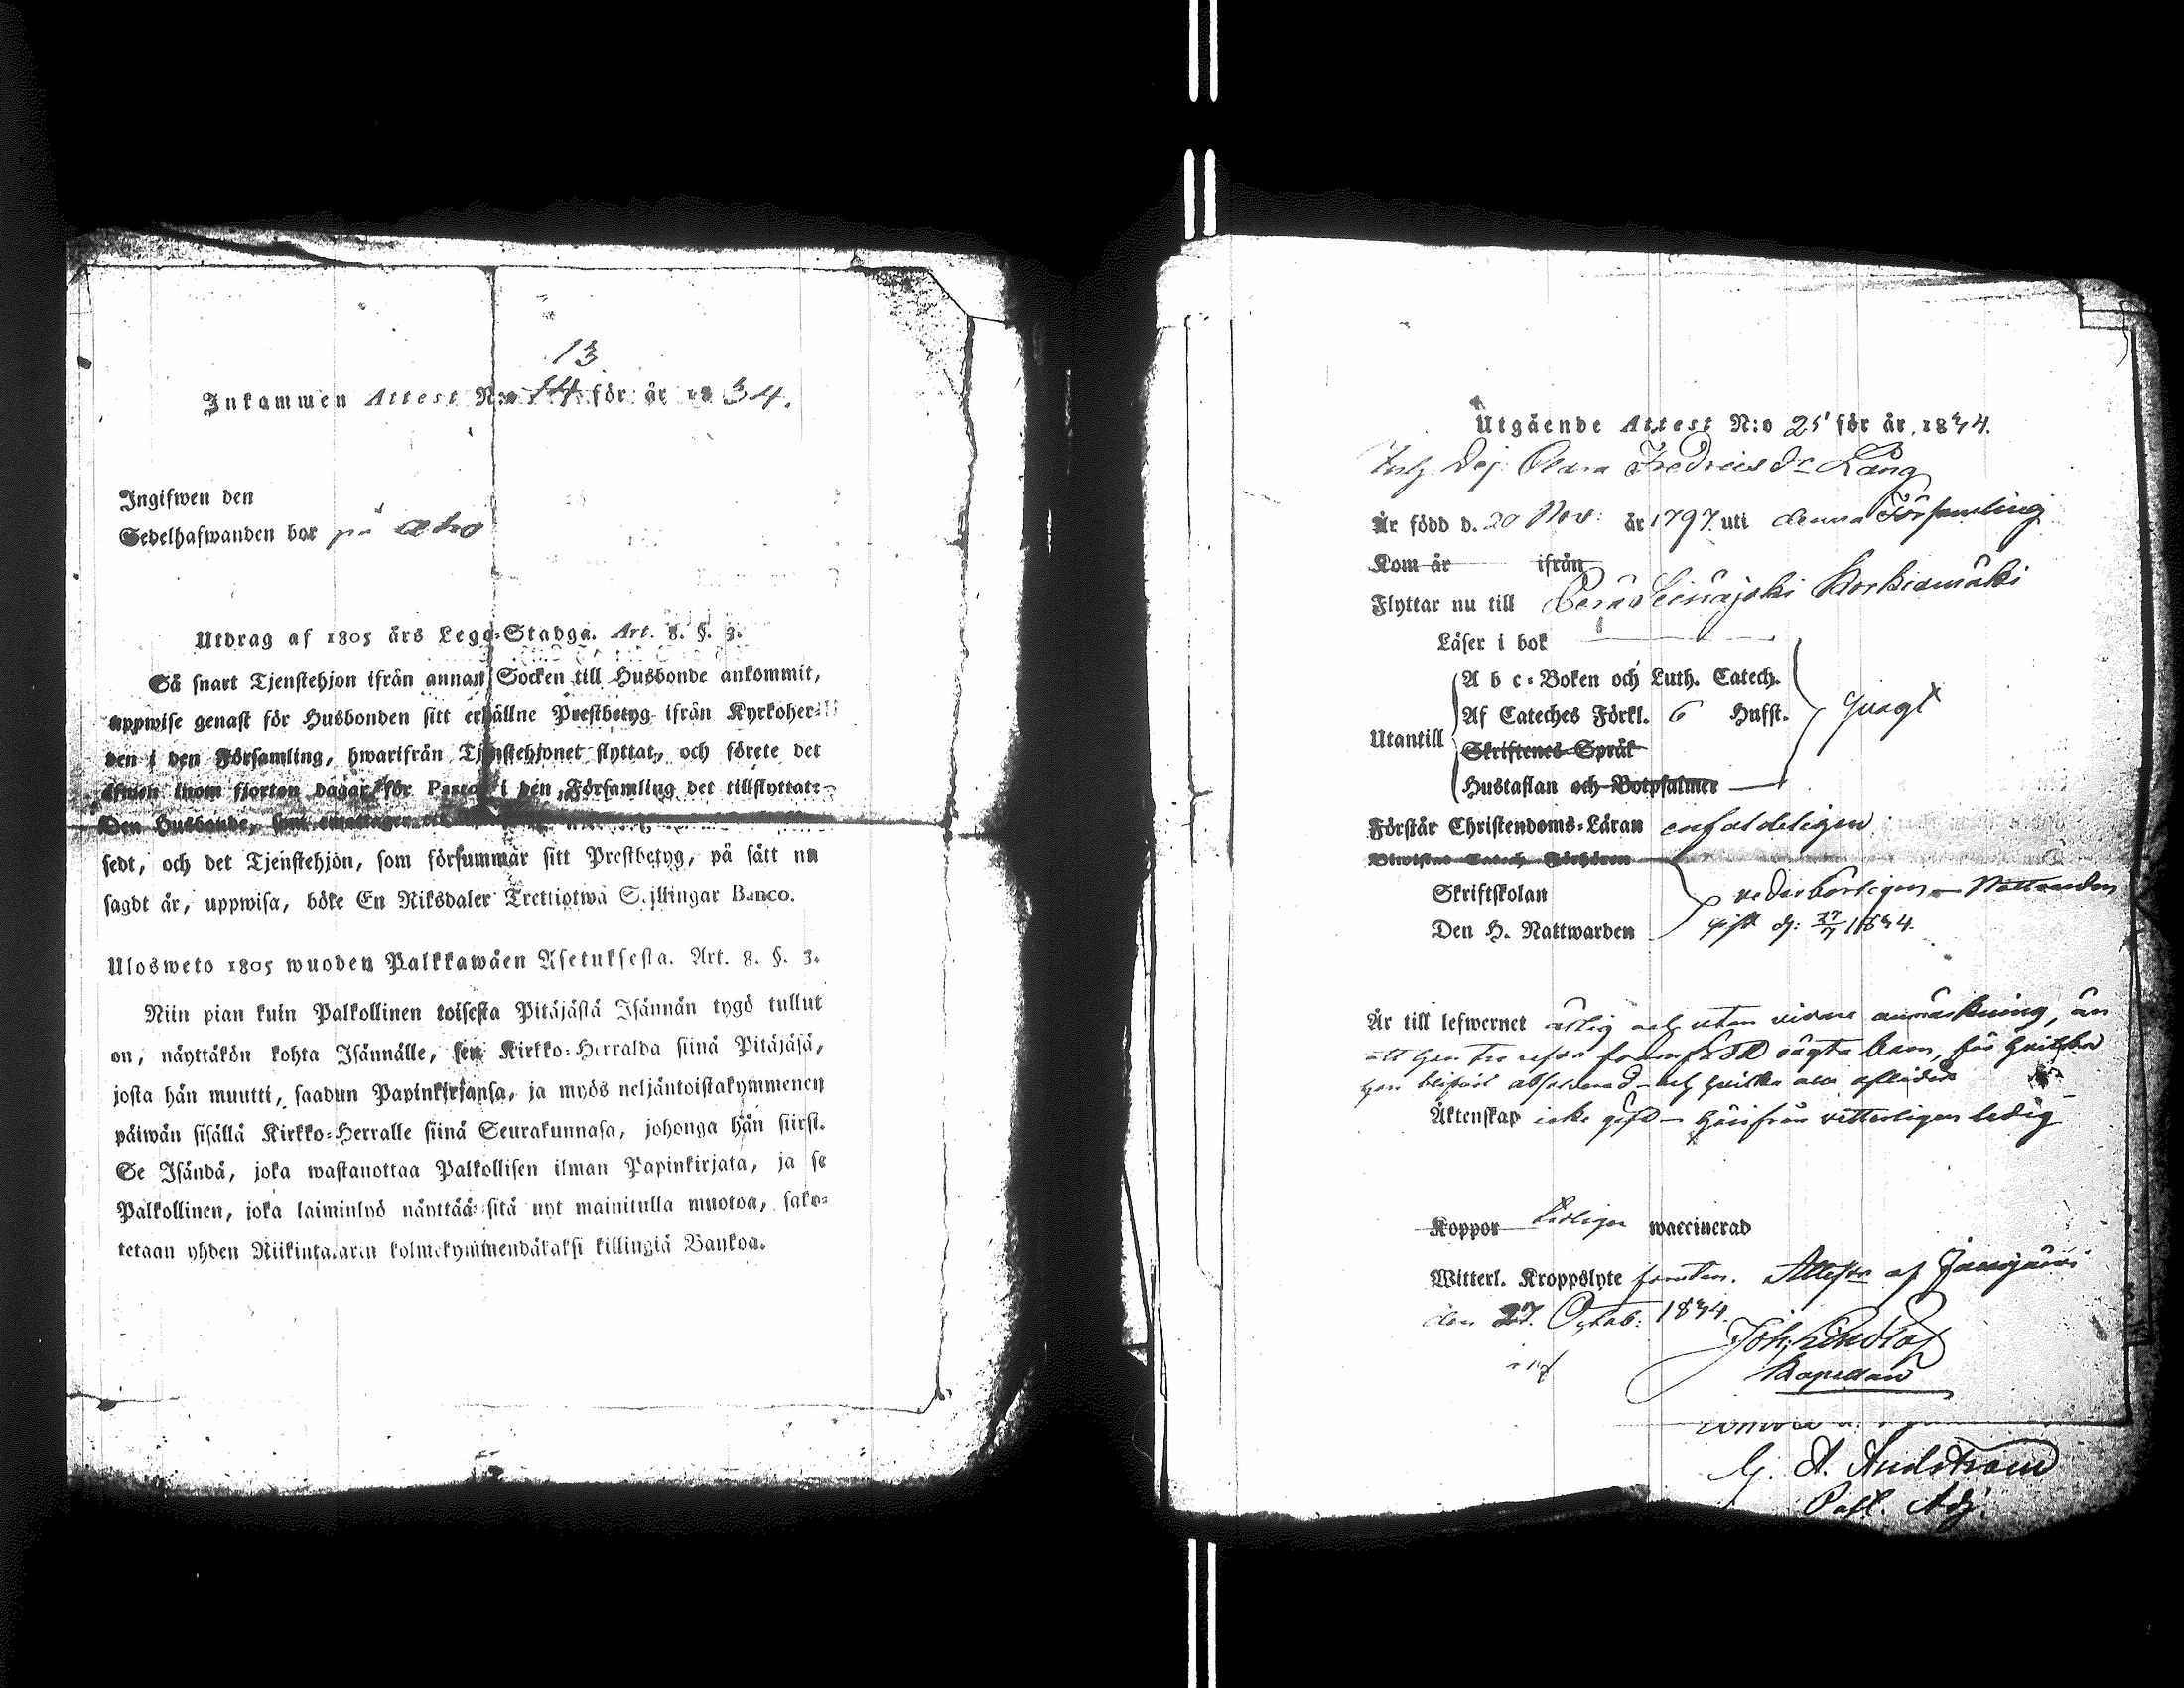 13
Inkommen Attest N:o 14 för år 1834.
Ingifwen den
Sedelhafwanden bor på
Utdrag af 1805 års Lego-Stadga. Art. 8. §. 3.
Så snart Tjenstehjon ifrån annan Socken till Husbonde ankommit,
uppwise genast för Husbonden sitt erhållne Prestbetyg ifrån Kyrkoher-
den i den Församling, hwarifrån Tjenstehjonet flyttat, och förete det
äfwen inom fjorton dagar för Pastor i den Församling det tillflyttat.
Den Husbonde, som emottager
sedt, och det Tjenstehjon, som försummar sitt Prestbetyg, på sätt nu
sagdt är, uppwisa, böte En Riksdaler Trettiotwå Skillingar Banco.
Ulosweto 1805 wuoden Palkkawäen Asetuksesta. Art. 8. §. 3.
Niin pian kuin Palkollinen toisesta Pitäjästä Isännän tygö tullut
on, näyttäkön kohta Isännälle, sen Kirkko-Herralda siinä Pitäjäsä,
josta hän muutti, saadun Papinkirjansa, ja myös neljäntoistakymmenen
päiwän sisällä Kirkko-Herralle siinä Seurakunnasa, johonga hän siirst.
Se Isändä, joka wastanottaa Palkollisen ilman Papinkirjata, ja se
Palkollinen, joka laiminlyö näyttää sitä nyt mainitulla muotoa, sako-
tetaan yhden Riikintalarin kolmekymmendäkaksi killingiä Bankoa.
Utgående Attest N:o 25 för år 1834.
Fredricsdr Lång
Är född d. 20 Nov: år 1797 uti denna Församling
Kom år ifrån
Flyttar nu till Peräseinäjoki Korkiamäki
Läser i bok
A b c-Boken och Luth. Catech.
Af Cateches Förkl. 6 Hufst.
Utantill
Skriftenes Språk
Hustaflan och Botpsalmer
svagt
Förstår Christendoms-Läran enfaldeligen
Biwistat Catech. Förhören
Skriftskolan vederbörligen Nattvarden
Den H. Nattwarden sist d: 27/7 1834.
Är till lefwernet ärlig och utan vidare anmärkning, än
att hon tre resor framfödt oägta barn, för hvilka
hon blifvit absolverad och hvilka alla aflidit
Äktenskap icke gift – härifrån vetterligen ledig
Koppor waccinerad
Witterl. Kroppslyte Attesteras af
den 27. Octob: 1834.
Joh: Lindlöf
Kapellan
G. A.
Past. Adj.